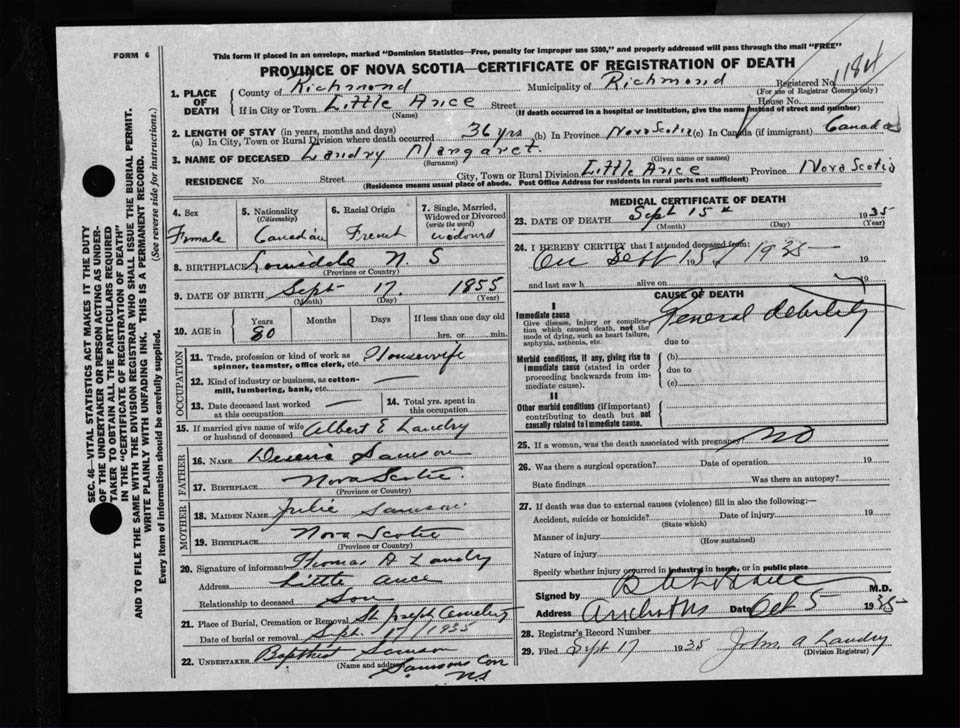 FORM 6
This form if placed in an envelope, marked "Dominion Statistics—Free, penalty for improper use $300," and properly addressed will pass through the mail "FREE"
PROVINCE OF NOVA SCOTIA—CERTIFICATE OF REGISTRATION OF DEATH
1. PLACE OF DEATH
County of Richmond Municipality of Richmond Registered No.
(For use of Registrar General only)
If in City or Town Little Ance Street House No.
(Name) (If death occurred in a hospital or institution, give the name instead of street and number)
2. LENGTH OF STAY (in years, months and days)
(a) In City, Town or Rural Division where death occurred 36 yrs (b) In Province Nova Scotia (c) In Canada (if immigrant) Canada
3. NAME OF DECEASED Landry Margaret.
(Surname) (Given name or names)
RESIDENCE No. Street City, Town or Rural Division Little Ance Province Nova Scotia
(Residence means usual place of abode. Post Office Address for residents in rural parts not sufficient)
4. Sex
Female
5. Nationality
(Citizenship)
Canadian
6. Racial Origin
French
7. Single, Married, Widowed or Divorced
(write the word)
8. BIRTHPLACE N. S
(Province or Country)
9. DATE OF BIRTH Sept 17. 1855
(Month) (Day) (Year)
10. AGE in
Years Months Days If less than one day old
80 hrs. or min.
OCCUPATION
11. Trade, profession or kind of work as spinner, teamster, office clerk, etc. Housewife
12. Kind of industry or business, as cotton-mill, lumbering, bank, etc. —
13. Date deceased last worked at this occupation —
14. Total yrs. spent in this occupation
15. If married give name of wife or husband of deceased Albert E Landry
FATHER
16. NAME Samson
17. BIRTHPLACE Nova Scotia.
(Province or Country)
MOTHER
18. MAIDEN NAME Julie Samson
19. BIRTHPLACE Nova Scotia
(Province or Country)
20. Signature of informant Thomas A Landry
Address Little Ance
Relationship to deceased Son
21. Place of Burial, Cremation or Removal St Joseph Cemetery
Date of burial or removal Sept. 17/1935
22. UNDERTAKER Baptist Samson
(Name and address) Samsons Cov
N.S
MEDICAL CERTIFICATE OF DEATH
23. DATE OF DEATH Sept 15th 1935
(Month) (Day) (Year)
24. I HEREBY CERTIFY that I attended deceased from:
On Sept 15 / 1935 19
and last saw h alive on 19
CAUSE OF DEATH
I
Immediate cause General debility
Give disease, injury or complication which caused death, not the mode of dying, such as heart failure, asphyxia, asthenia, etc.
due to
Morbid conditions, if any, giving rise to immediate cause (stated in order proceeding backwards from immediate cause).
(b)
due to
(c)
II
Other morbid conditions (if important) contributing to death but not causally related to immediate cause.
25. If a woman, was the death associated with pregnancy? NO
26. Was there a surgical operation? Date of operation 19
State findings Was there an autopsy?
27. If death was due to external causes (violence) fill in also the following:—
Accident, suicide or homicide? Date of injury 19
(State which)
Manner of injury
(How sustained)
Nature of injury
Specify whether injury occurred in industry in home, or in public place
Signed by M.D.
Address Date Oct 5 1935
28. Registrar's Record Number
29. Filed Sept 17 1935 John. A Landry
(Division Registrar)
SEC. 46—VITAL STATISTICS ACT MAKES IT THE DUTY
OF THE UNDERTAKER OR PERSON ACTING AS UNDER-
TAKER TO OBTAIN ALL THE PARTICULARS REQUIRED
IN THE "CERTIFICATE OF REGISTRATION OF DEATH"
AND TO FILE THE SAME WITH THE DIVISION REGISTRAR WHO SHALL ISSUE THE BURIAL PERMIT.
WRITE PLAINLY WITH UNFADING INK. THIS IS A PERMANENT RECORD.
Every item of information should be carefully supplied. (See reverse side for instructions.)